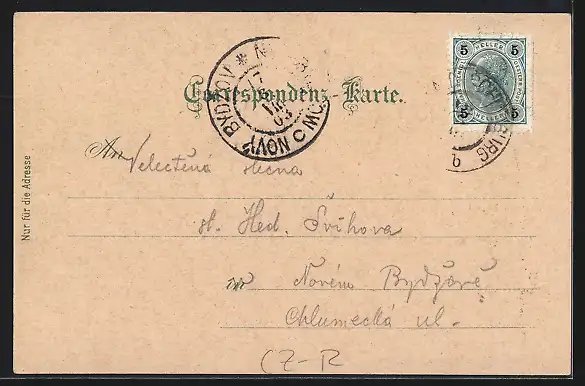 Correspondenz-Karte.
5 HELLER 5
5 HELLER 5
NOVÝ BYDŽOV * NEU
17
VIII
03
BURG
An Velectěná slečna
sl. Hed. Švihova
in Novém Bydžově
Chlumecká ul.
CZ-R
Nur für die Adresse